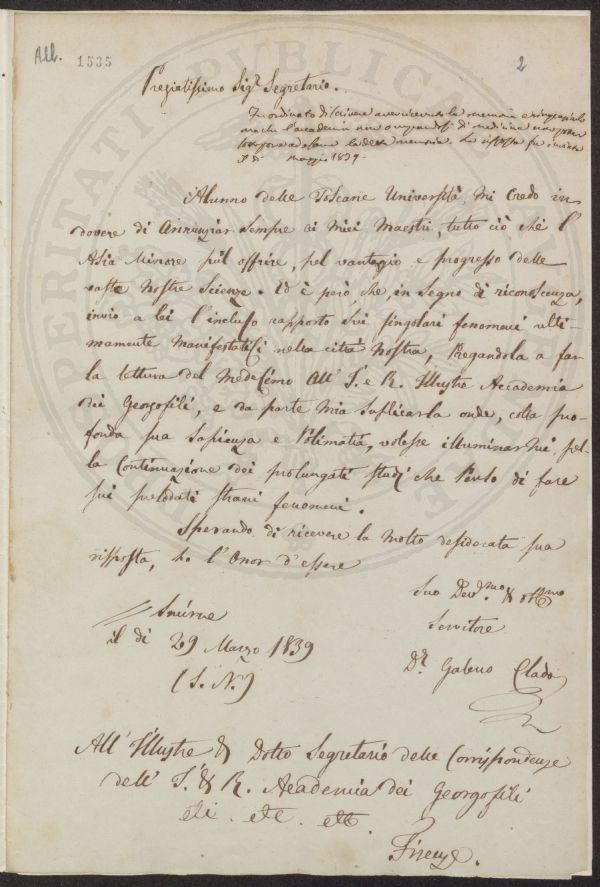 All. 1535
2
Pregiatissimo Sigr. Segretario.
Fu ordinato di scrivere
di medicina
la detta memoria. La risposta fu inviata
Maggio 1839.
Alunno delle Toscane Università, mi credo in
dovere di Annunziar sempre ai miei Maestri, tutto ciò che l'
Asia Minore può offrire, pel vantagio e progresso delle
vaste Nostre Scienze. Id è però che, in Segno di riconoscenza,
invio a lei l'incluso rapporto sui singolari fenomeni ulti-
mamente Manifestatisi nella città Nostra, Pregandola a far
la lettura del Medesimo All' I. e R. Illustre Accademia
dei Georgofili, e da parte Mia Suplicarla onde, colla pro-
fonda sua Sapienza e Polimatia, volesse illuminarmi, pel-
la Continuazione dei prolungati studj che Penso di fare
sui prelodati strani fenomeni.
Sperando di ricevere la molto desiderata sua
risposta, ho l'Onor d'essere
Suo Devmo. & Obbmo
Servitore
Smirne
il di 29 Marzo 1839
(S. N.)
Dr. Galeno Clado
All' Illustre & Dotto Segretario delle Corrispondenze
dell' I. & R. Academia dei Georgofili
etc. etc. etc.
Firenze.